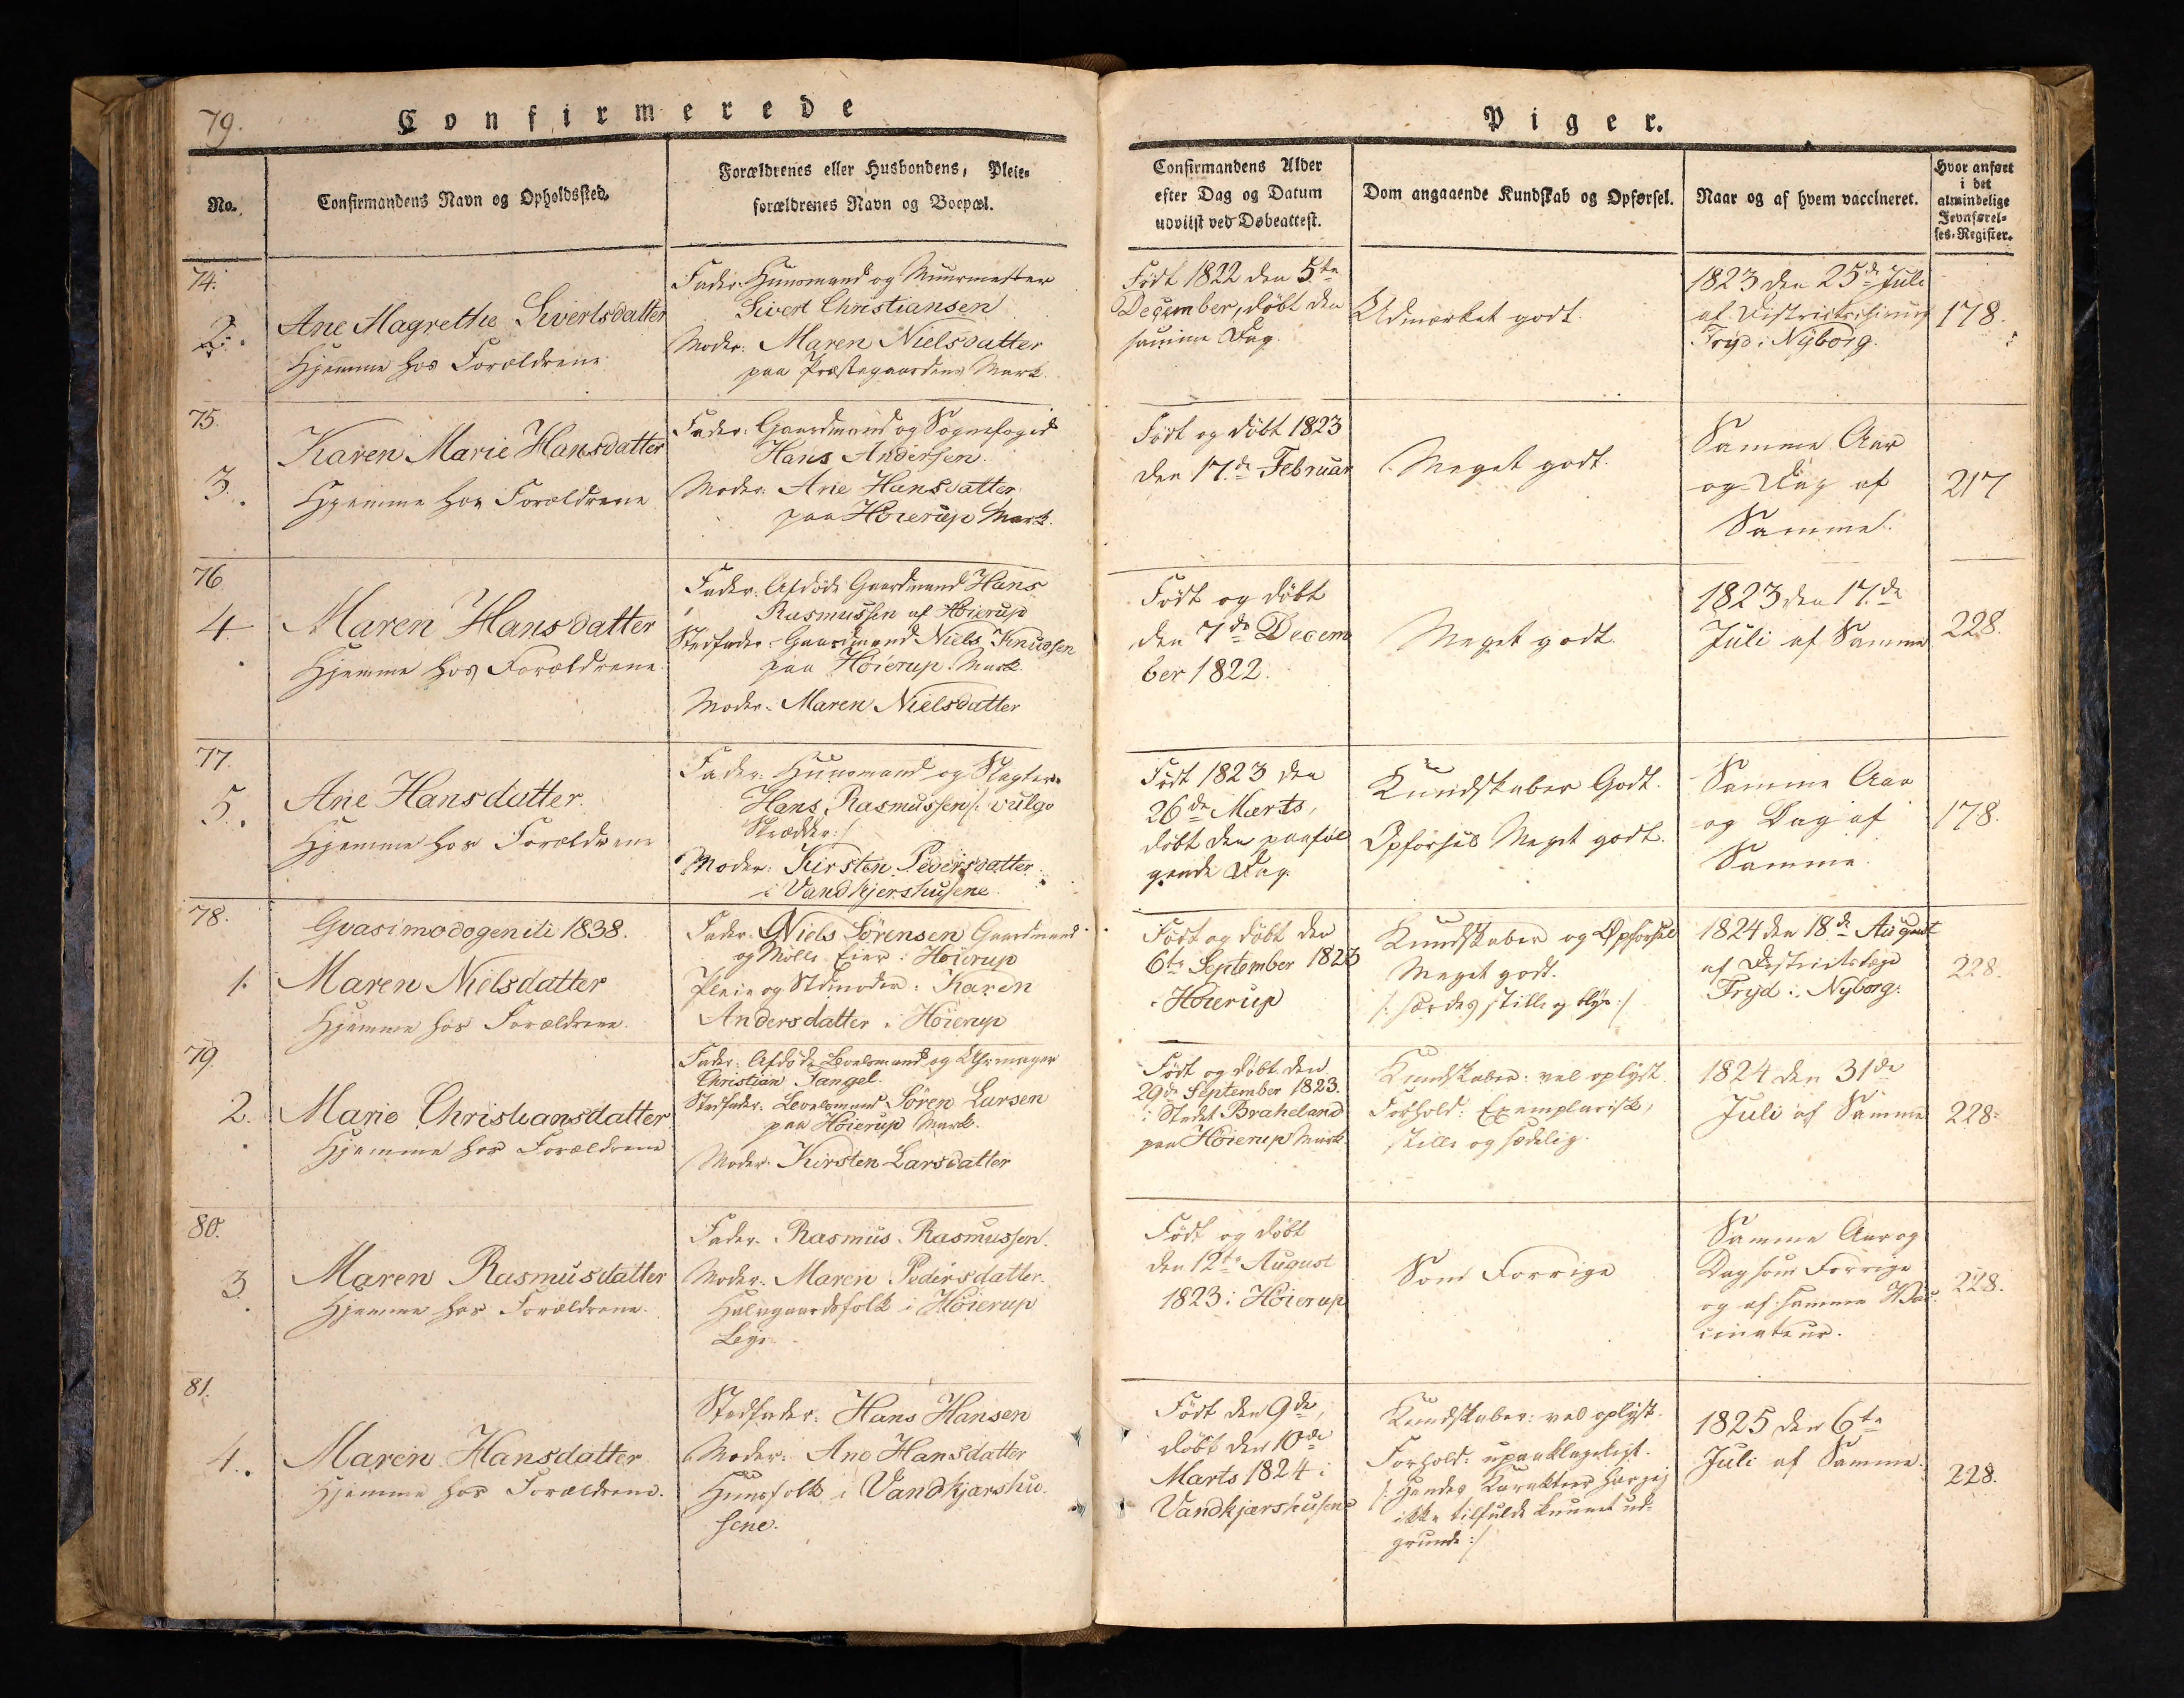 79.
Confirmerede
Piger.
No.
Confirmandens Navn og Opholdssted.
Forældrenes eller Husbondens, Pleie-
forældrenes Navn og Boepæl.
Confirmandens Alder
efter Dag og Datum
udviist ved Døbeattest.
Dom angaaende Kundskab og Opførsel.
Naar og af hvem vaccineret.
Hvor anført
i det
almindelige
Jevnførel-
ses-Register.
74.
2.
Ane Magrethe Sivertsdatter
Hjemme hos Forældrene
Fader: Huusmand og Muurmester
Sivert Christiansen
Moder: Maren Nielsdatter
paa Præstegaardens Mark.
Født 1822 den 5te
December, døbt den
samme Dag.
Udmærket godt.
1823 den 25de Juli
af Districtschirurg
Fryd i Nyborg.
178.
75.
3.
Karen Marie Hansdatter
Hjemme hos Forældrene
Fader: Gaardmand og Sognefoged
Hans Andersen.
Moder: Ane Hansdatter
paa Høierup Mark.
Født og døbt 1823
den 17de Februar
Meget godt.
Samme Aar
og Dag af
Samme.
217
76.
4.
Maren Hansdatter
Hjemme hos Forældrene.
Fader: Afdøde Gaardmand Hans
Rasmussen af Høierup
Stedfader: Gaardmand Niels Knudsen
paa Høierup Mark.
Moder: Maren Nielsdatter
Født og døbt
den 7de Decem
ber 1822.
Meget godt.
1823 den 17de
Juli af Samme
228.
77.
5.
Ane Hansdatter.
Hjemme hos Forældrene
Fader: Huusmand og Slagter
Hans Rasmussen /: vulgo
Skrædder :/
Moder: Kirsten Pedersdatter
i Vandkjershusene.
Født 1823 den
26de Marts,
døbt den paaføl
gende Dag.
Kundskaber Godt.
Opførsel Meget godt.
Samme Aar
og Dag af
Samme.
178.
78.
Qvasimodogeniti 1838.
1.
Maren Nielsdatter
Hjemme hos Forældrene.
Fader: Niels Sørensen Gaardmand
og Mølle Eier i Høierup
Pleie og Stedmoder: Karen
Andersdatter i Høierup
Født og døbt den
6te September 1823
i Høierup
Kundskaber og Opførsel
Meget godt.
/: særdeles stille og blye :/
1824 den 18de August
af Districtslæge
Fryd i Nyborg.
228.
79.
2.
Marie Christiansdatter
Hjemme hos Forældrene
Fader: Afdøde Boelsmand og Uhrmager
Christian Fangel.
Stedfader: Boelsmand Søren Larsen
paa Høierup Mark.
Moder: Kirsten Larsdatter
Født og døbt den
29de September 1823.
i Stedet Braheland
paa Høierup Mark
Kundskaber: vel oplyst.
Forhold: Exemplarisk,
stille og sædelig.
1824 den 31de
Juli af Samme
228.
80.
3.
Maren Rasmusdatter
Hjemme hos Forældrene.
Fader: Rasmus Rasmussen.
Moder: Maren Pedersdatter.
Halvgaardsfolk i Høierup
Født og døbt
den 12te August
1823 i Høierup
Som Forrige
Samme Aar og
Dag som Forrige
og af samme Vac
cinateur.
228.
81.
4.
Maren Hansdatter
Hjemme hos Forældrene.
Stedfader: Hans Hansen
Moder: Ane Hansdatter
Huusfolk i Vandkjærshu
sene.
Født den 9de,
døbt den 10de
Marts 1824 i
Vandkjærshusene
Kundskaber: vel oplyst.
Forhold: upaaklageligt.
/: Hendes Karakteer har jeg
ikke tilfulde kunnet ud-
grunde :/
1825 den 6te
Juli af Samme.
228.